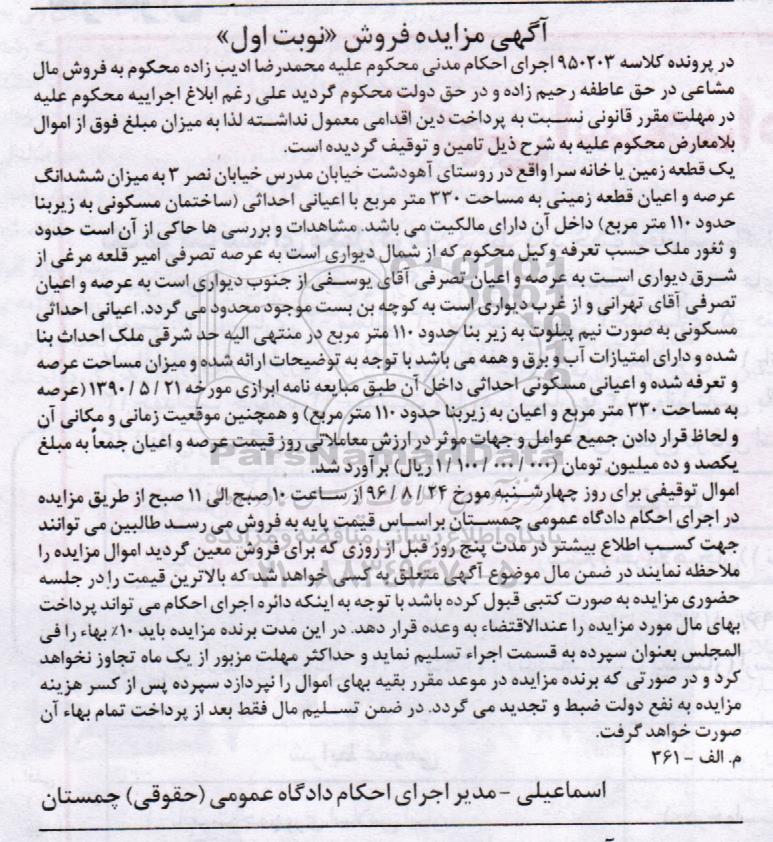 آگهی مزایده فروش «نوبت اول»
در پرونده کلاسه ۹۵۰۲۰۳ اجرای احکام مدنی محکوم علیه محمدرضا ادیب زاده محکوم به فروش مال
مشاعی در حق عاطفه رحیم زاده و در حق دولت محکوم گردید علی رغم ابلاغ اجراییه محکوم علیه
در مهلت مقرر قانونی نسبت به پرداخت دین اقدامی معمول نداشته لذا به میزان مبلغ فوق از اموال
بلامعارض محکوم علیه به شرح ذیل تامین و توقیف گردیده است.
یک قطعه زمین با خانه سرا واقع در روستای آهودشت خیابان مدرس خیابان نصر ۳ به میزان ششدانگ
عرصه و اعیان قطعه زمینی به مساحت ۳۳۰ متر مربع با اعیانی احداثی (ساختمان مسکونی به زیربنا
حدود ۱۱۰ متر مربع) داخل آن دارای مالکیت می باشد. مشاهدات و بررسی ها حاکی از آن است حدود
و ثغور ملک حسب تعرفه وکیل محکوم که از شمال دیواری است به عرصه تصرفی امیر قلعه مرغی از
شرق دیواری است به عرصه و اعیان تصرفی آقای یوسفی از جنوب دیواری است به عرصه و اعیان
تصرفی آقای تهرانی و از غرب دیواری است به کوچه بن بست موجود محدود می گردد. اعیانی احداثی
مسکونی به صورت نیم پیلوت به زیر بنا حدود ۱۱۰ متر مربع در منتهی الیه حد شرقی ملک احداث بنا
شده و دارای امتیازات آب و برق و همه می باشد با توجه به توضیحات ارائه شده و میزان مساحت عرصه
و تعرفه شده و اعیانی مسکونی احداثی داخل آن طبق مبایعه نامه ابرازی مورخه ۲۱ / ۵ / ۱۳۹۰ (عرصه
به مساحت ۳۳۰ متر مربع و اعیان به زیربنا حدود ۱۱۰ متر مربع) و همچنین موقعیت زمانی و مکانی آن
و لحاظ قرار دادن جمیع عوامل و جهات موثر در ارزش معاملاتی روز قیمت عرصه و اعیان جمعاً به مبلغ
یکصد و ده میلیون تومان (۰۰۰ / ۰۰۰ / ۱۰۰ / ۱ ریال) برآورد شد.
اموال توقیفی برای روز چهارشنبه مورخ ۲۴ / ۸ / ۹۶ از ساعت ۱۰ صبح الی ۱۱ صبح از طریق مزایده
در اجرای احکام دادگاه عمومی چمستان براساس قیمت پایه به فروش می رسد طالبین می توانند
جهت کسب اطلاع بیشتر در مدت پنج روز قبل از روزی که برای فروش معین گردید اموال مزایده را
ملاحظه نمایند در ضمن مال موضوع آگهی متعلق به کسی خواهد شد که بالاترین قیمت را در جلسه
حضوری مزایده به صورت کتبی قبول کرده باشد با توجه به اینکه دائره اجرای احکام می تواند پرداخت
بهای مال مورد مزایده را عندالاقتضاء به وعده قرار دهد. در این مدت برنده مزایده باید ۱۰٪ بهاء را فی
المجلس بعنوان سپرده به قسمت اجراء تسلیم نماید و حداکثر مهلت مزبور از یک ماه تجاوز نخواهد
کرد و در صورتی که برنده مزایده در موعد مقرر بقیه بهای اموال را نپردازد سپرده پس از کسر هزینه
مزایده به نفع دولت ضبط و تجدید می گردد. در ضمن تسلیم مال فقط بعد از پرداخت تمام بهاء آن
صورت خواهد گرفت.
م. الف - ۳۶۱
اسماعیلی - مدیر اجرای احکام دادگاه عمومی (حقوقی) چمستان
ParsNamadData
پایگاه اطلاع رسانی مناقصه و مزایده
۰۲۱-۸۸۳۴۹۶۷۰-۵